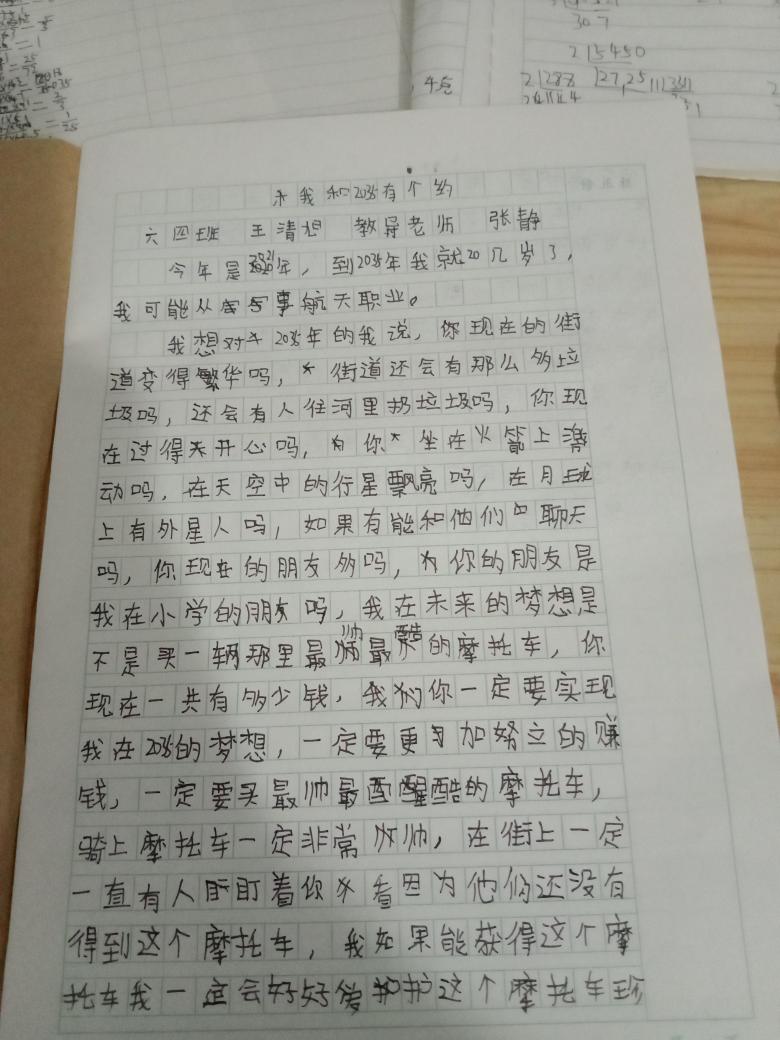 我和2035有个约
六四班 王清旭 教导老师 张静
今年是2021年，到2035年我就20几岁了，
我可能从事航天职业。
我想对2035年的我说，你现在的街
道变得繁华吗，街道还会有那么多垃
圾吗，还会有人往河里扔垃圾吗，你现
在过得开心吗，你坐在火箭上激
动吗，在天空中的行星飘亮吗，在月球
上有外星人吗，如果有能和他们聊天
吗，你现在的朋友多吗，你的朋友是
我在小学的朋友吗，我在未来的梦想是
不是买一辆那里最帅最酷的摩托车，你
现在一共有多少钱，我你一定要实现
我在2035的梦想，一定要更加努立的赚
钱，一定要买最帅最酷的摩托车，
骑上摩托车一定非常帅，在街上一定
一直有人盯着你看因为他们还没有
得到这个摩托车，我如果能获得这个摩
托车我一定会好好爱护这个摩托车珍
4克
307
2 15450
2 288
27,25